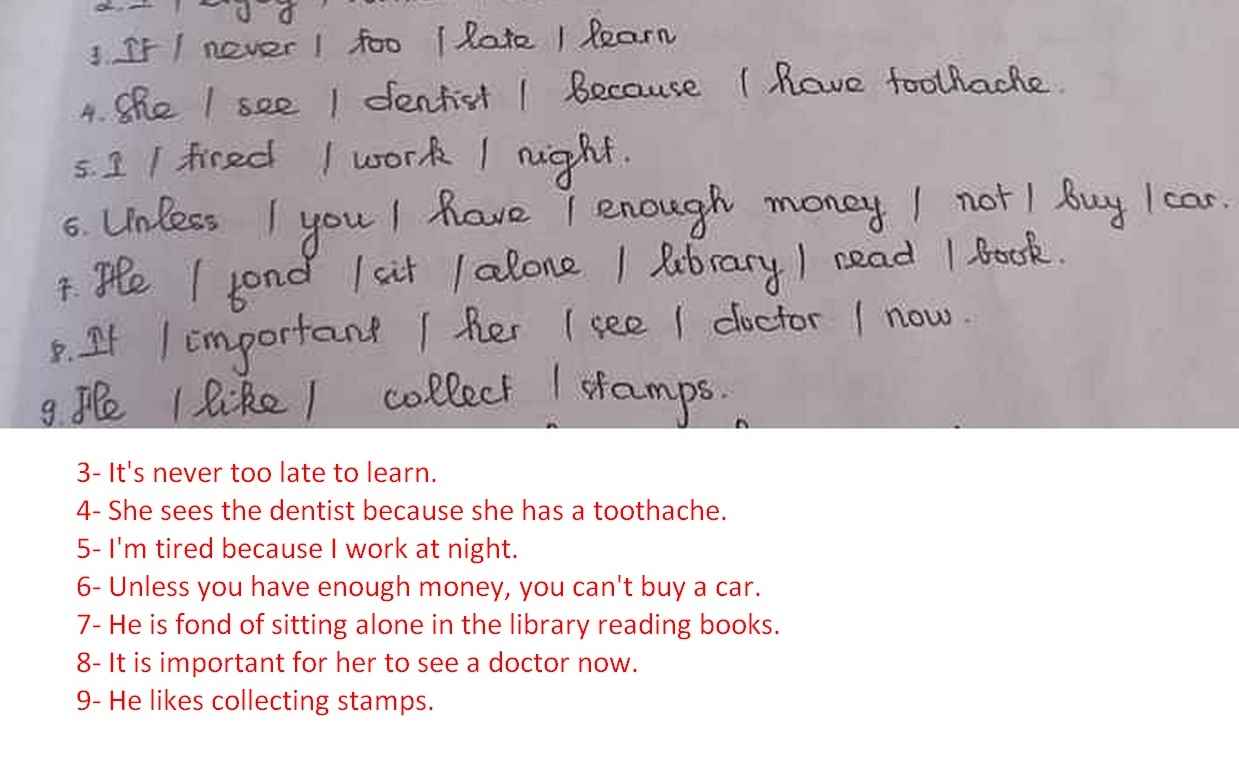 3. It / never / too / late / learn
4. She / see / dentist / because / have toothache.
5. I / tired / work / night.
6. Unless / you / have / enough money / not / buy / car.
7. He / fond / sit / alone / library / read / book.
8. It / important / her / see / doctor / now.
9. He / like / collect / stamps.
3- It's never too late to learn.
4- She sees the dentist because she has a toothache.
5- I'm tired because I work at night.
6- Unless you have enough money, you can't buy a car.
7- He is fond of sitting alone in the library reading books.
8- It is important for her to see a doctor now.
9- He likes collecting stamps.